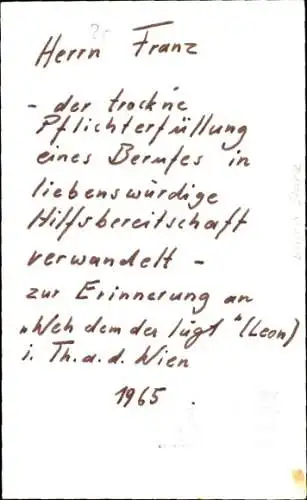 Herrn Franz
- der trockne
Pflichterfüllung
eines Berufes in
liebenswürdige
Hilfsbereitschaft
verwandelt -
zur Erinnerung an
„Weh dem der lügt" (Leon)
i. Th. a. d. Wien
1965.